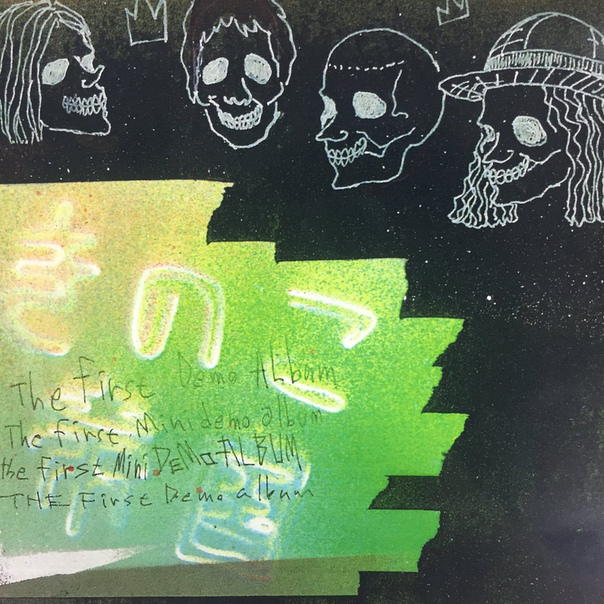 きのこ
帝国
The first Demo ALbum
The first Mini demo album
the first Mini DEMO ALBUM
THE First Demo album